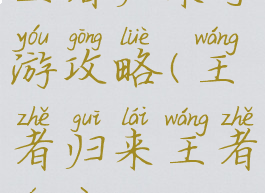 yóu gōng lüè wáng
游攻略(王
zhě guī lái wáng zhě
者归来王者